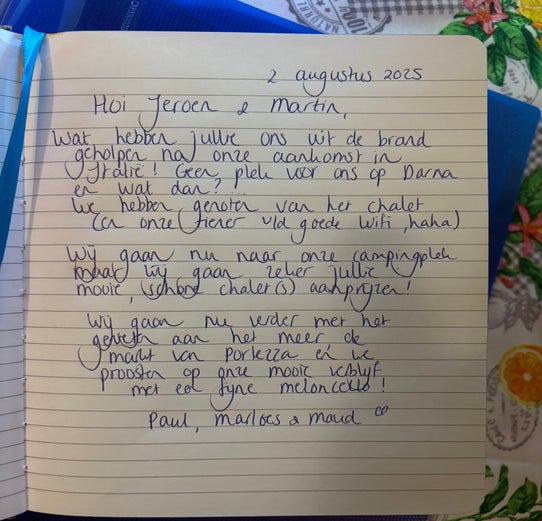 2 augustus 2025
Hoi Jeroen & Martin,
Wat hebben jullie ons uit de brand
geholpen na onze aankomst in
Italië! Geen plek voor ons op Darna
en wat dan?...
We hebben genoten van het chalet
(en onze tiener v/d goede wifi, haha)
Wij gaan nu naar onze campingplek
wij gaan zeker jullie
mooie, schone chalet(s) aanprijzen!
Wij gaan nu verder met het
genieten aan het meer de
markt van Porlezza en we
proosten op onze mooie verblijf
met een fijne meloncello!
Paul, Marloes & Maud
100%